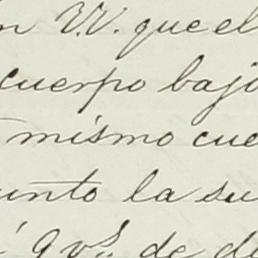 V.V. que el
cuerpo bajo
mismo cue
unto la su
de de